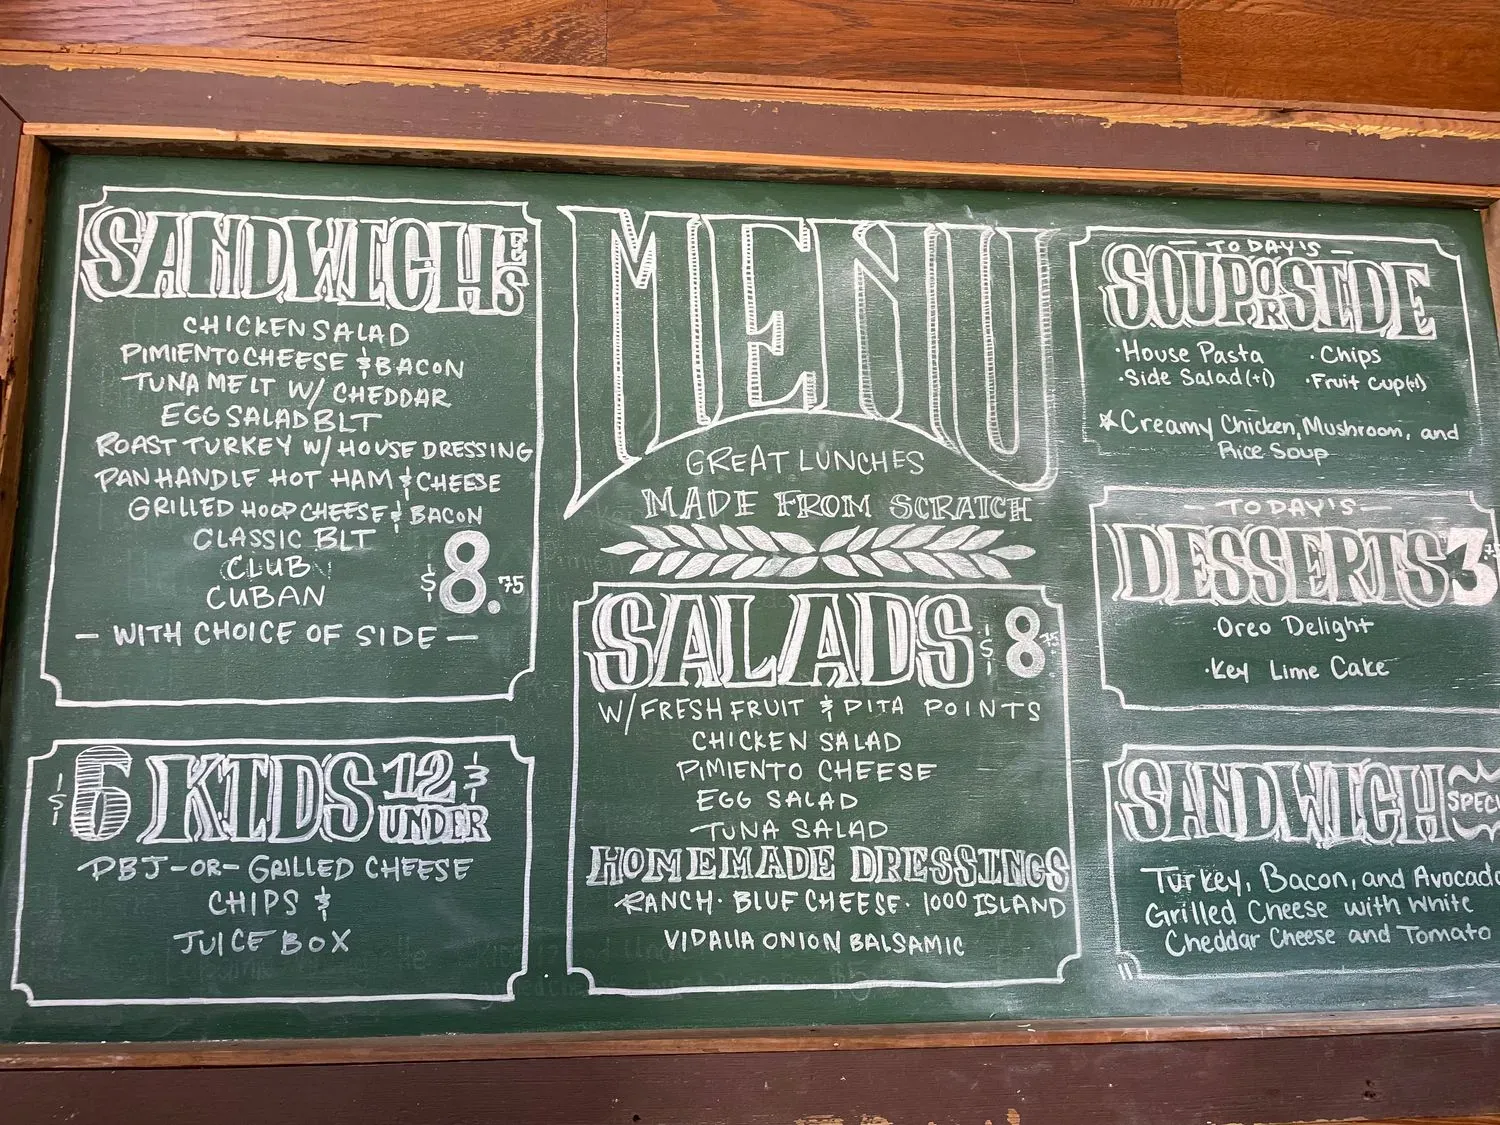 SANDWICHES
CHICKEN SALAD
PIMIENTO CHEESE & BACON
TUNA MELT W/ CHEDDAR
EGG SALAD BLT
ROAST TURKEY W/ HOUSE DRESSING
PANHANDLE HOT HAM & CHEESE
GRILLED HOOP CHEESE & BACON
CLASSIC BLT
CLUB
CUBAN
$8.75
— WITH CHOICE OF SIDE —
$6 KIDS 12 &
UNDER
PBJ -OR- GRILLED CHEESE
CHIPS &
JUICE BOX
MENU
GREAT LUNCHES
MADE FROM SCRATCH
SALADS $8.75
W/ FRESH FRUIT & PITA POINTS
CHICKEN SALAD
PIMIENTO CHEESE
EGG SALAD
TUNA SALAD
HOMEMADE DRESSINGS
RANCH · BLUE CHEESE · 1000 ISLAND
VIDALIA ONION BALSAMIC
— TODAY'S —
SOUP OR SIDE
· House Pasta · Chips
· Side Salad (+1) · Fruit Cup (+1)
☆ Creamy Chicken, Mushroom, and
Rice Soup
— TODAY'S —
DESSERTS 3.
· Oreo Delight
· Key Lime Cake
SANDWICH
Turkey, Bacon, and Avocado
Grilled Cheese with White
Cheddar Cheese and Tomato